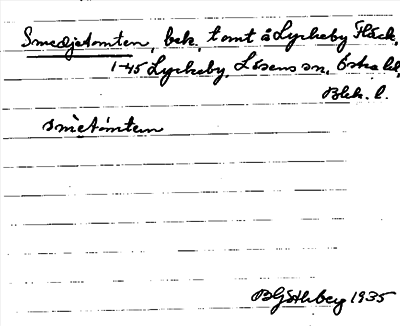 Smedjetomten, bek. tomt å Lyckeby fläck,
1-45 Lyckeby, Lösens sn, Östra hd,
Blek. l.
smètómten
B Göthberg 1935